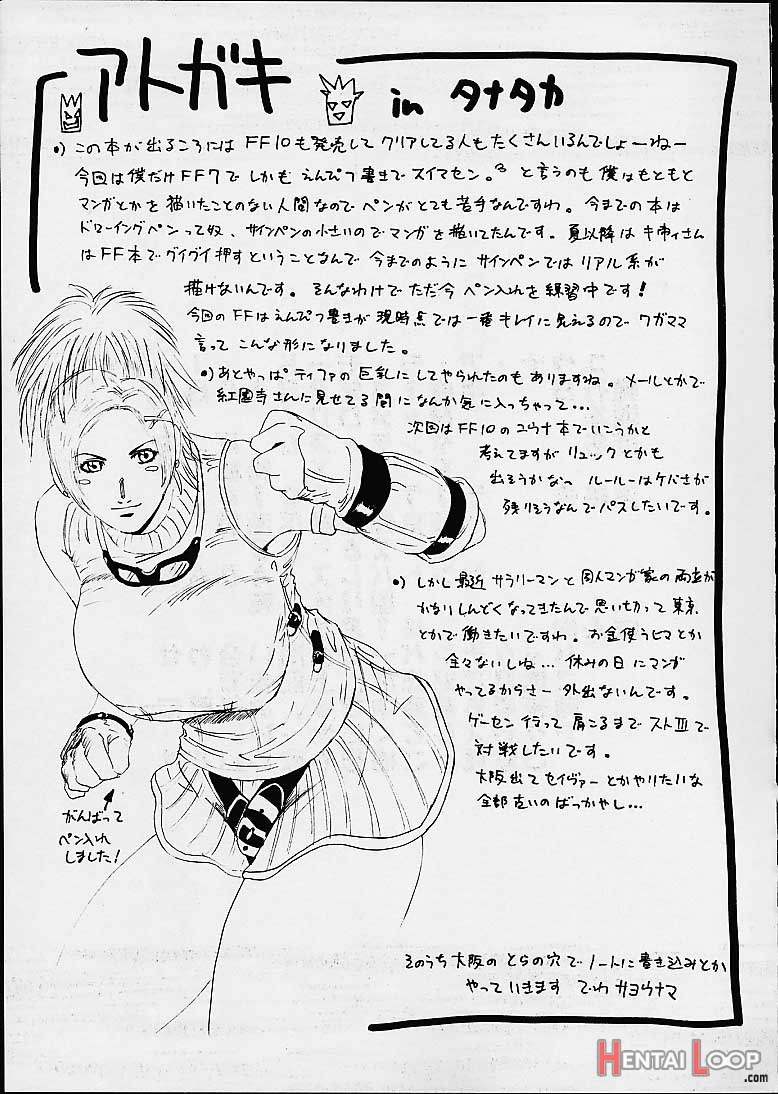 アトガキ
in タナタカ
•) この本が出るころには FF10も発売して クリアしてる人もたくさんいるんでしょーねー
今回は僕だけFF7で しかも えんぴつ書きで スイマセン。 と言うのも 僕はもともと
マンガとかを 描いたことのない人間なので ペンがとても苦手なんですわ。今までの本は
ドローイングペンって奴、サインペンの小さいので マンガを描いてたんです。夏以降は さん
はFF本で グイグイ押すということなんで 今までのように サインペンでは リアル系が
描けないんです。そんなわけで ただ今 ペン入れを練習中です!
今回のFFは えんぴつ書きが 現時点では一番キレイに見えるので ワガママ
言って こんな形になりました。
•) あとやっぱ ティファの巨乳に してやられたのも ありますね。メールとかで
紅園寺さんに見せてる間に なんか気に入っちゃって…
次回はFF10のユウナ本でいこうかと
考えてますが リュックとかも
出そうかなっ ルールーはケバさが
残りそうなんで パスしたいです。
•) しかし最近 サラリーマンと同人マンガ家の両立が
かなりしんどくなってきたんで 思い切って 東京
とかで働きたいですわ。お金使うヒマとか
全々ないしね… 休みの日にマンガ
やってるからさー 外出ないんです。
ゲーセン行って 肩こるまで ストⅢで
対戦したいです。
大阪出て セイヴァーとかやりたいな
全部古いのばっかやし…
がんばって
ペン入れ
しました!
そのうち大阪の とらの穴で ノートに書き込みとか
やっていきます でわ サヨウナマ
HENTAI LOOP
.com